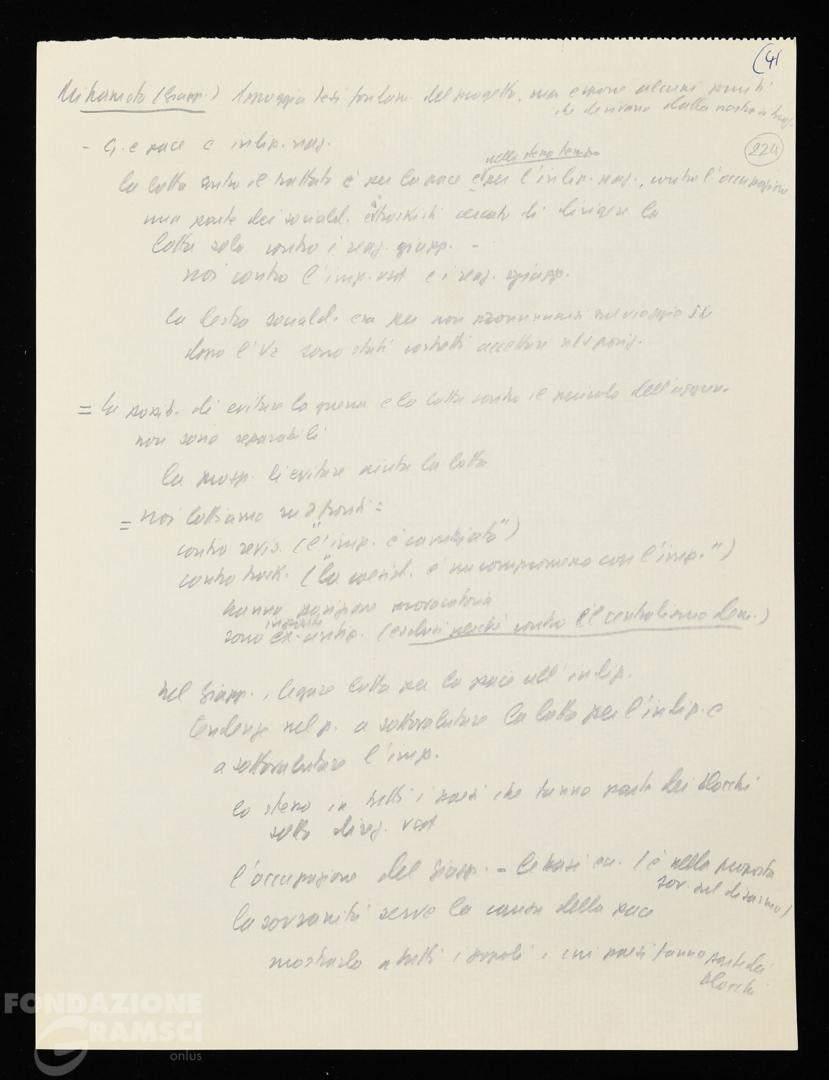 (41
(Giapp.) Appoggia tesi fondam. del progetto, ma espone alcuni punti
che derivano dalla nostra
224
- G. e pace e indip. naz.
nello stesso tempo
la lotta contro il trattato è per la pace e per l'indip. naz., contro l'occupazione
una parte dei sociald. e trotskisti cercato di dirigere la
lotta solo contro i reaz. giapp. -
noi contro l'imp. usa e i reaz. giapp.
la destra sociald. era per non pronunciarsi sul viaggio
dopo l'U2 sono stati costretti accettare
= la possib. di evitare la guerra e la lotta contro il pericolo dell'aggress.
non sono separabili
la prosp. di evitare aiuta la lotta
= noi lottiamo su 2 fronti =
contro revis. ("l'imp. è cambiato")
contro trotsk. ("la coesist. è un compromesso con l'imp.")
hanno posizione provocatoria
sono (esclusi perché contro il centralismo dem.)
nel Giapp., legare lotta per la pace all'indip.
tendenze nel p. a sottovalutare la lotta per l'indip. e
a sottovalutare l'imp.
lo stesso in tutti i paesi che fanno parte dei blocchi
sotto direz. usa
l'occupazione del Giapp. - le basi (è nella proposta
sov. sul disarmo)
la sovranità serve la causa della pace
mostrarlo a tutti i popoli i cui paesi fanno parte dei
blocchi
FONDAZIONE
GRAMSCI
onlus